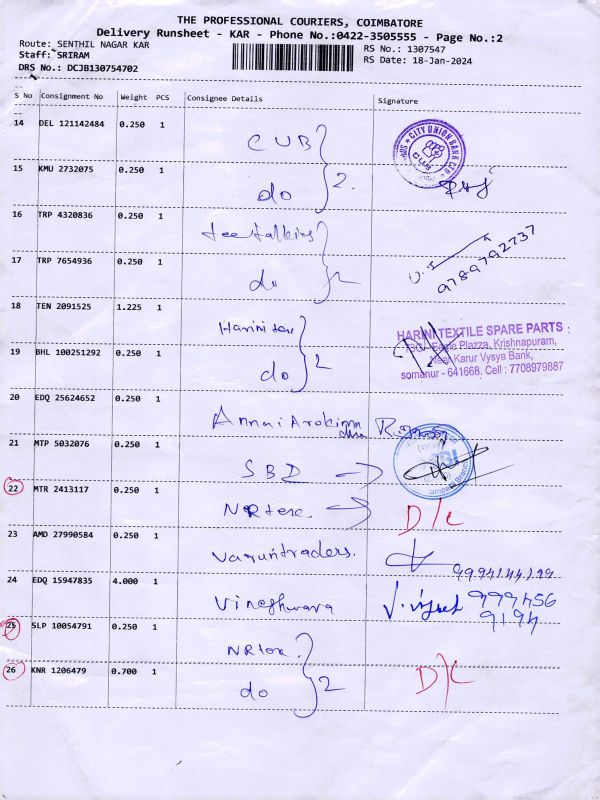 THE PROFESSIONAL COURIERS, COIMBATORE
Delivery Runsheet - KAR - Phone No.:0422-3505555 - Page No.:2
Route: SENTHIL NAGAR KAR
RS No.: 1307547
Staff: SRIRAM
RS Date: 18-Jan-2024
DRS No.: DCJB130754702
S No Consignment No Weight PCS Consignee Details Signature
14 DEL 121142484 0.250 1 CUB
CITY UNION BANK LTD
CUB
15 KMU 2732075 0.250 1 do 2.
16 TRP 4320836 0.250 1
17 TRP 7654936 0.250 1 do 2 9789792737
18 TEN 2091525 1.225 1 Harini tex
HARINI TEXTILE SPARE PARTS
Plazza, Krishnapuram,
Near Karur Vysya Bank,
somanur - 641668. Cell : 7708979887
19 BHL 100251292 0.250 1 do 2
20 EDQ 25624652 0.250 1 Annai Arokia
21 MTP 5032076 0.250 1 SBD
22 MTR 2413117 0.250 1 NR tex. D/C
23 AMD 27990584 0.250 1 Varuntraders.
24 EDQ 15947835 4.000 1 Vineshwara 999456
9194
25 SLP 10054791 0.250 1 NR tex.
26 KNR 1206479 0.700 1 do 2 D/C